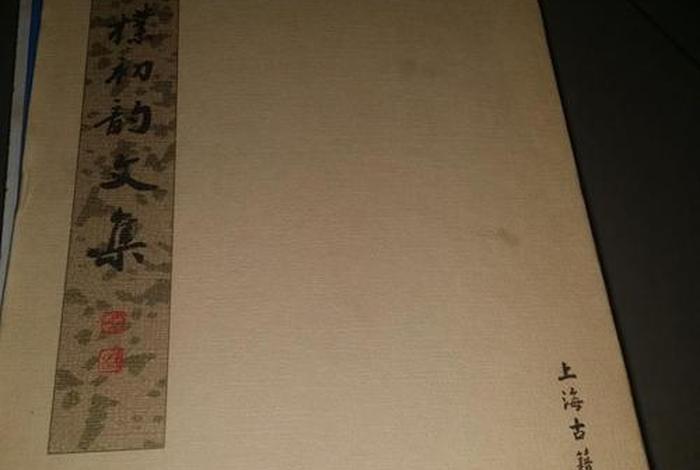 樸初韵文集
上海古籍